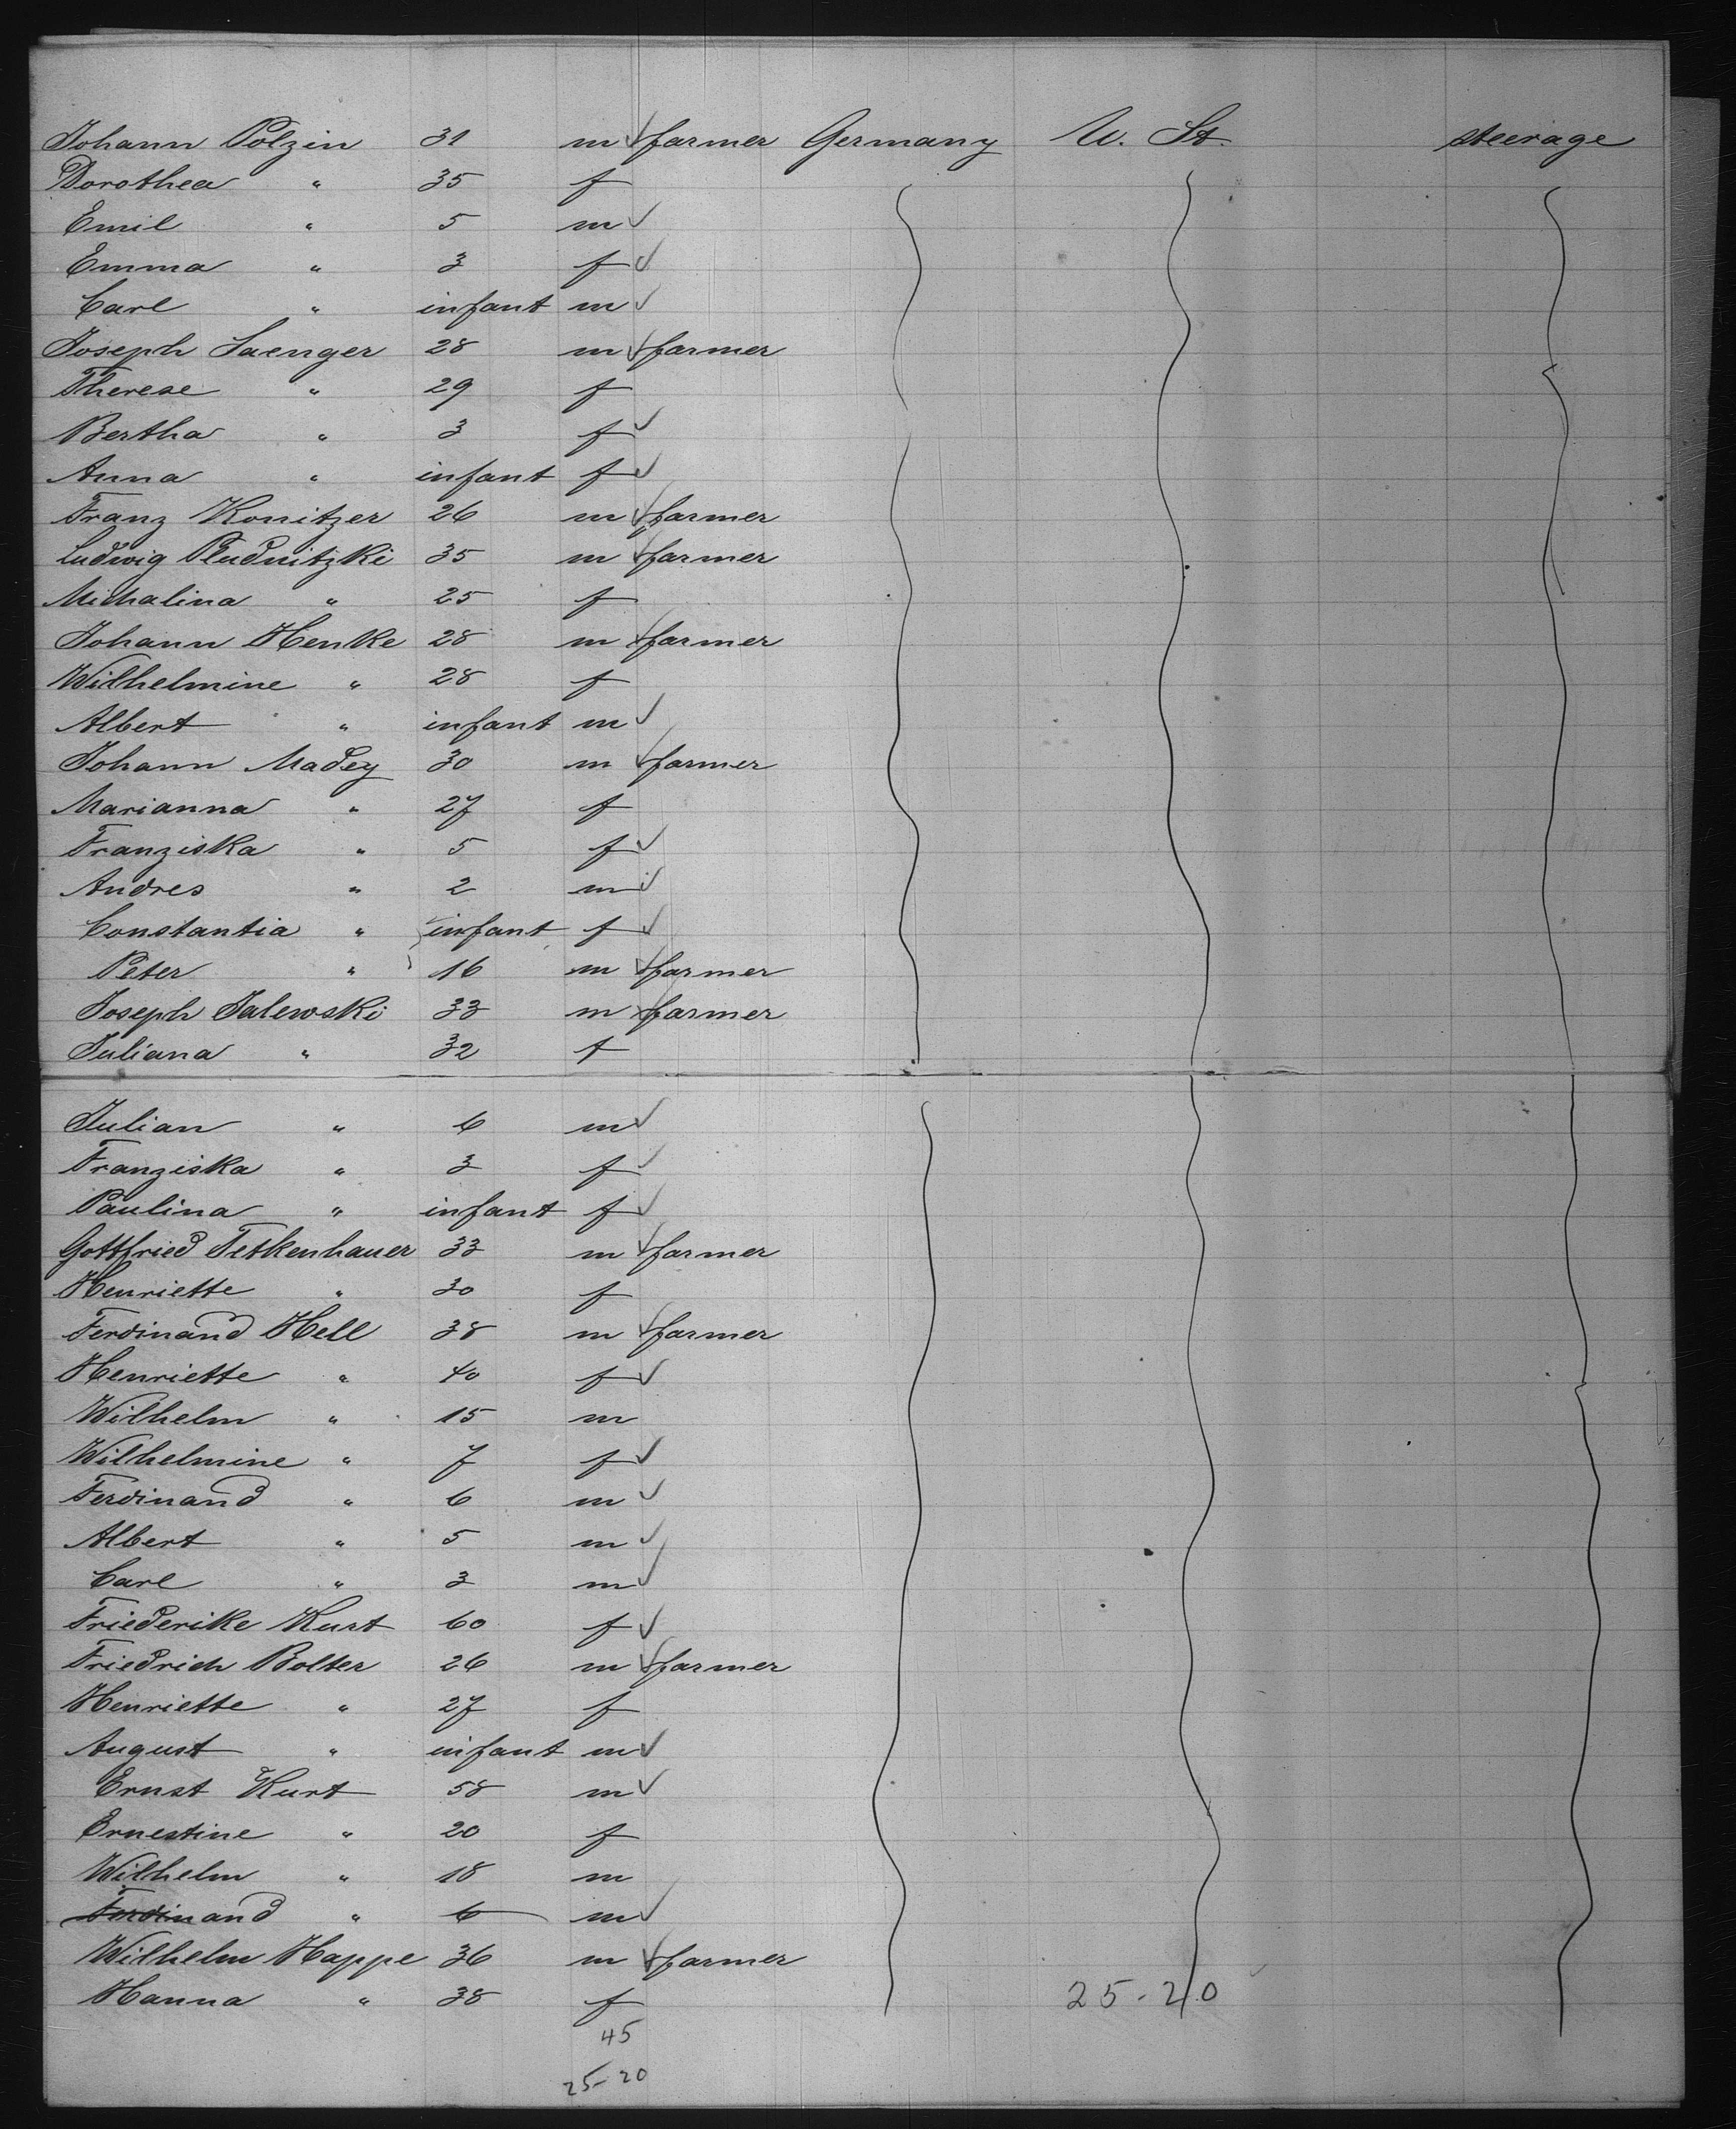 Johann Polzin 31 m farmer Germany U. St. steerage
Dorothea " 35 f
Emil " 5 m
Emma " 3 f
Carl " infant m
Joseph Saenger 28 m farmer
Therese " 29 f
Bertha " 3 f
Anna " infant f
Franz Konitzer 26 m farmer
Ludwig Pludnitzki 35 m farmer
Michalina " 25 f
Johann Henke 28 m farmer
Wilhelmine " 28 f
Albert " infant m
Johann Madey 30 m farmer
Marianna " 27 f
Franziska " 5 f
Andres " 2 m
Constantia " infant f
Peter " 16 m farmer
Joseph Jalewski 33 m farmer
Juliana " 32 f
Julian " 6 m
Franziska " 3 f
Paulina " infant f
Gottfried Tetkenhauer 33 m farmer
Henriette " 30 f
Ferdinand Hell 38 m farmer
Henriette " 40 f
Wilhelm " 15 m
Wilhelmine " 7 f
Ferdinand " 6 m
Albert " 5 m
Carl " 3 m
Friederike Kurt 60 f
Friedrich Bolter 26 m farmer
Henriette " 27 f
August " infant m
Ernst Kurt 58 m
Ernestine " 20 f
Wilhelm " 18 m
Ferdinand " 6 m
Wilhelm Happe 36 m farmer
Hanna " 38 f 25-20
45
25-20